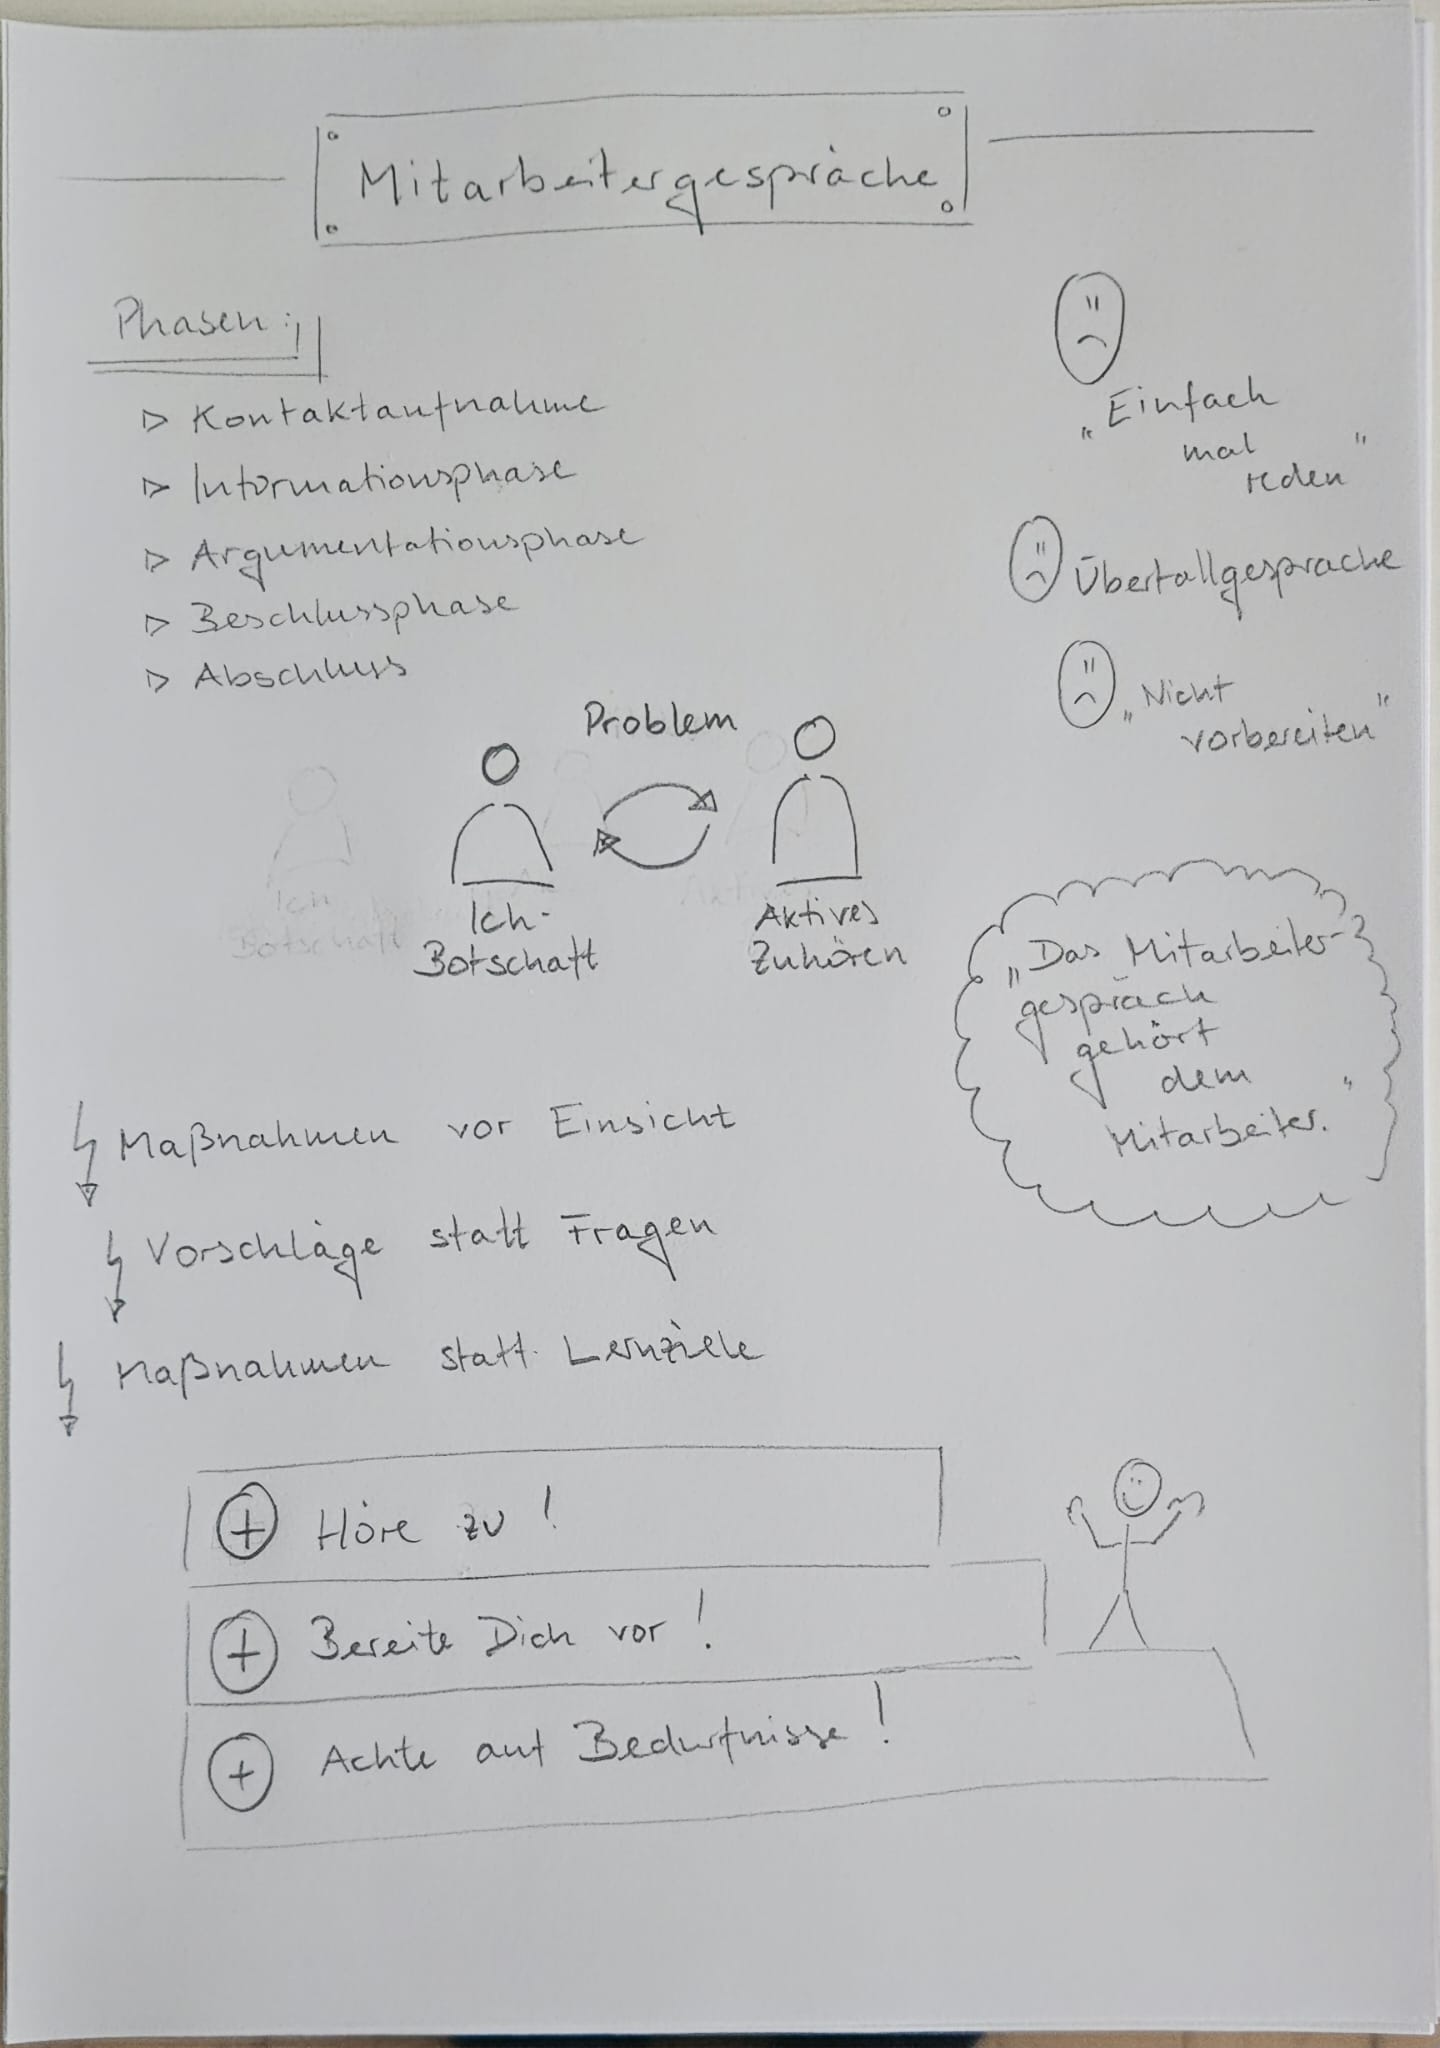 Mitarbeitergespräche
Phasen:
▷ Kontaktaufnahme
▷ Informationsphase
▷ Argumentationsphase
▷ Beschlussphase
▷ Abschluss
„Einfach
mal
reden"
Überfallgespräche
„Nicht
vorbereiten"
Problem
Ich-
Botschaft
Aktives
Zuhören
Ich
Botschaft
„Das Mitarbeiter-
gespräch
gehört
dem
Mitarbeiter."
Maßnahmen vor Einsicht
Vorschläge statt Fragen
Maßnahmen statt Lernziele
+ Höre zu!
+ Bereite Dich vor!
+ Achte auf Bedürfnisse!